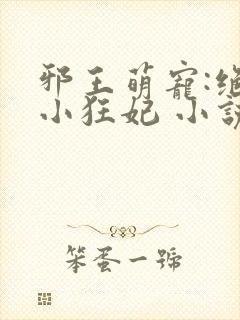 邪王萌寵:絕
小狂妃 小說
笨蛋一號